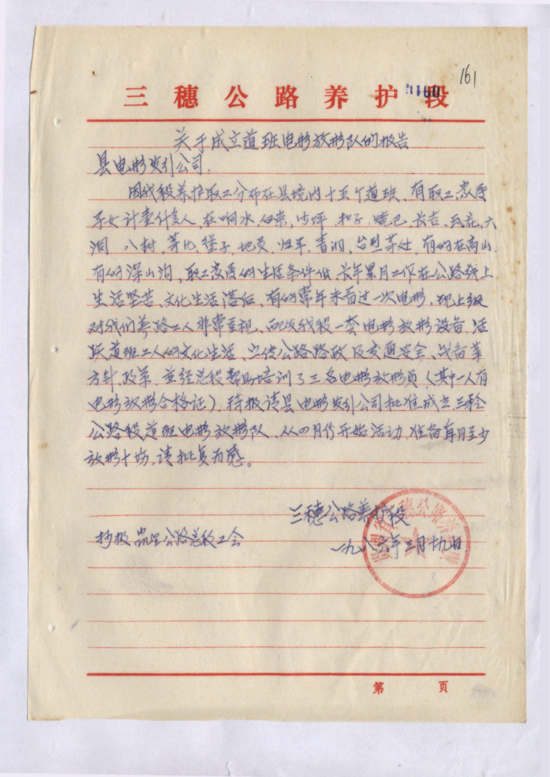 161
0160
三穗公路养护段
关于成立道班电影放影队的报告
县电影发行公司:
因我段养护职工分布在县境内十五个道班,有职工家属
子女计壹什多人,在响水、白崇、沙坪、和子、晓巴、长吉、瓦花、六
洞、八树、等比、堡子、地麦、归牙、青洞、台烈等处,有的在高山,
有的深山沟,职工家属的生活条件低,长年累月工作在公路线上,
生活坚苦,文化生活落后,有的常年未看过一次电影,现上级
对我们养路工人非常重视,配给我段一套电影放影设备,活
跃道班工人的文化生活,宣传公路路政及交通安全、战备等
方针政策,并经总段帮助培训了三名电影放影员(其中一人有
电影放影合格证),特报请县电影发行公司批准成立三穗
公路段道班电影放影队,从四月份开始活动,准备每月至少
放影十场,请批复为感。
三穗公路养护段
抄报 凯里公路总段工会
一九八六年三月十九日
第 页